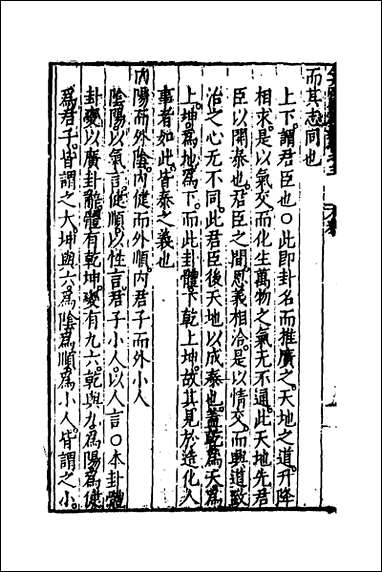 而其志同也
上下謂君臣也○此即卦名而推廣之天地之道升降
相求是以氣交而化生萬物之氣无不通此天地先君
臣以開泰也君臣之間恩義相洽是以情交而興道致
治之心无不同此君臣後天地以成泰也蓋乾為天為
上坤為地為下而此卦體下乾上坤故其見於造化人
事者如此皆泰之義也
內陽而外陰內健而外順內君子而外小人
陰陽以氣言健順以性言君子小人以人言○本卦體
卦變以廣卦辭體有乾坤變有九六乾與九為陽為健
為君子皆謂之大坤與六為陰為順為小人皆謂之小